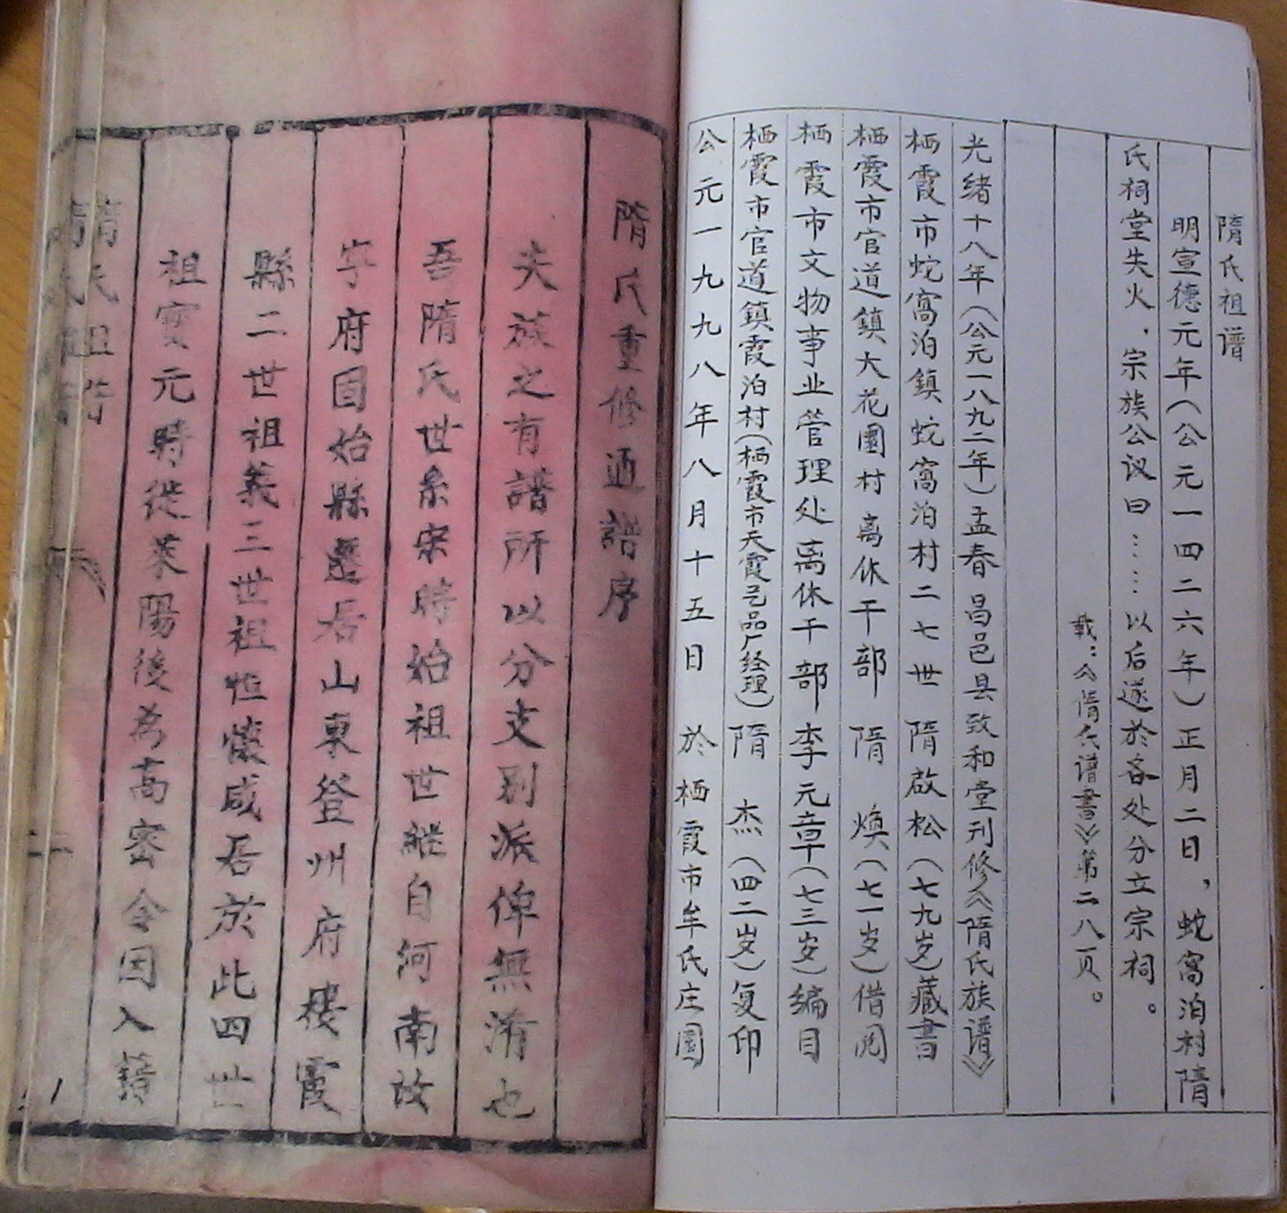 隋氏祖谱
明宣德元年（公元一四二六年）正月二日，蛇窝泊村隋
氏祠堂失火．宗族公议曰：……以后遂於各处分立宗祠。
载：《隋氏谱書》第二八页。
光绪十八年（公元一八九二年）孟春昌邑县致和堂刊修《隋氏族谱》
栖霞市蛇窝泊鎮蛇窝泊村二七世 隋啟松（七九岁）藏書
栖霞市官道鎮大花園村离休干部 隋 煥（七一岁）借阅
栖霞市文物事业管理处离休干部 李元章（七三岁）編目
栖霞市官道鎮霞泊村（栖霞市天霞艺品厂经理） 隋 杰（四二岁）复印
公元一九九八年八月十五日 於栖霞市牟氏庄園
隋氏重修通譜序
夫族之有譜所以分支别派俾無淆也
吾隋氏世系宋時始祖世継自河南故
寧府固始縣遷居山東登州府棲霞
縣二世祖義三世祖恒懷咸居於此四世
祖寳元時從莱陽後為高密令因入籍
隋氏祖谱
二